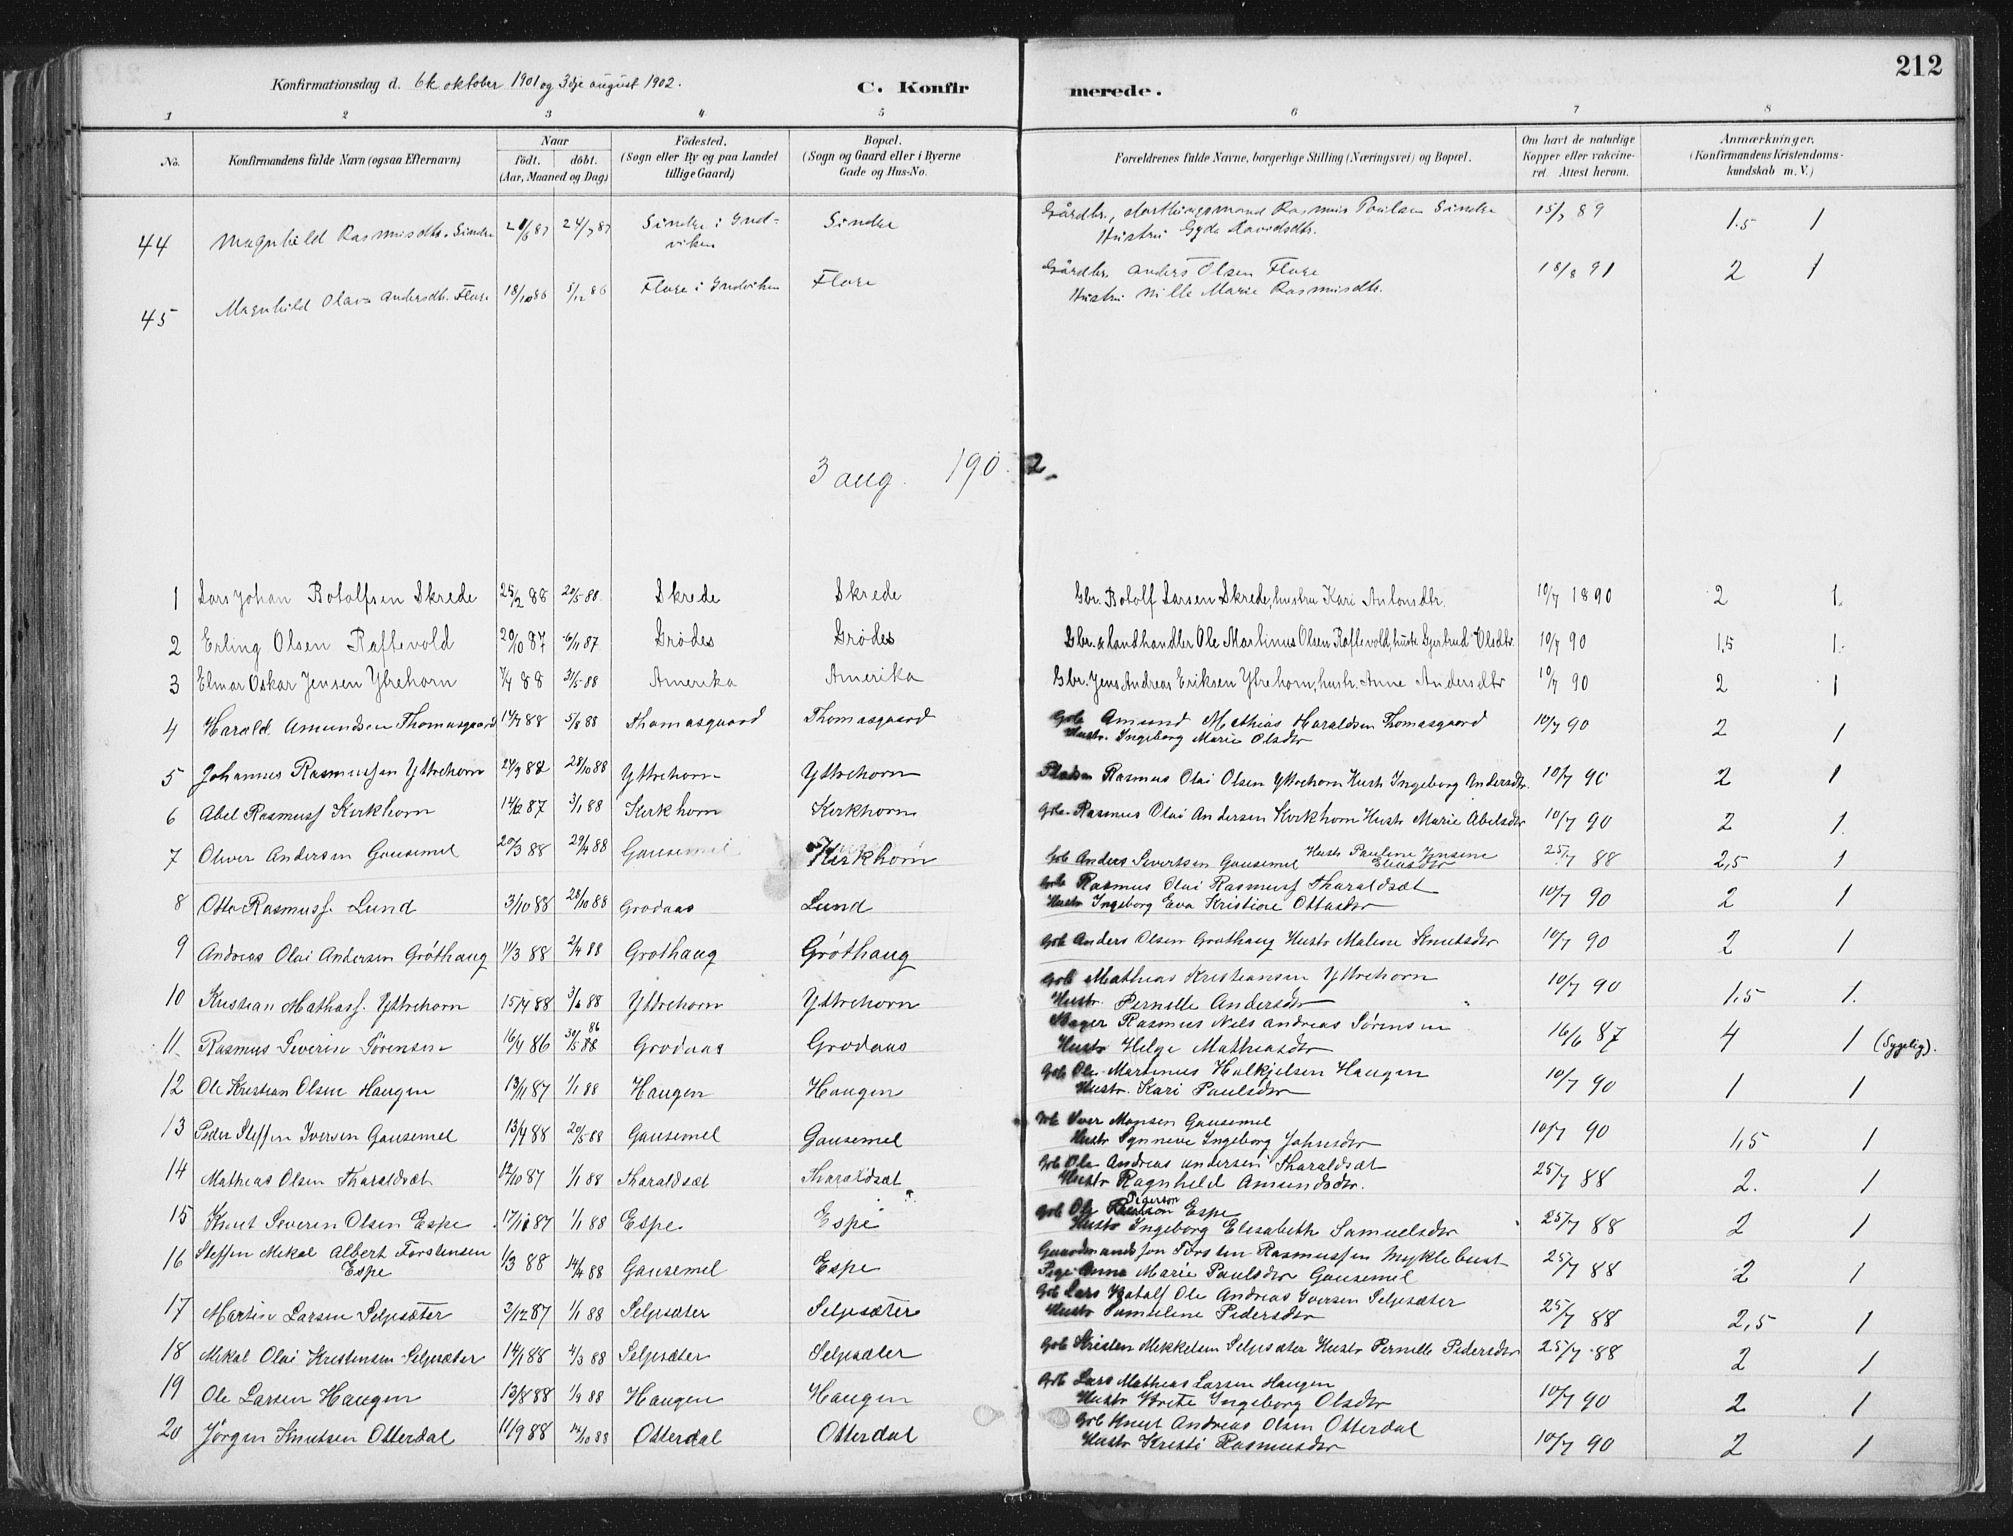 212
Konfirmationsdag d. 6te oktober 1901 og 3dje august 1902.
C. Konfirmerede.
1 2 3 4 5 6 7 8
No. Konfirmandens fulde Navn (ogsaa Efternavn) Naar födt. döbt. (Aar, Maaned og Dag) Födested. (Sogn eller By og paa Landet tillige Gaard) Bopæl. (Sogn og Gaard eller i Byerne Gade og Hus-No. Forældrenes fulde Navne, borgerlige Stilling (Næringsvei) og Bopæl. Om havt de naturlige Kopper eller vakcineret. Attest herom. Anmærkninger. (Konfirmandens Kristendomskundskab m. V.)
44 Magnhild Rasmusdtr. Sindre 24/7 87 Sindre i Indviken Sindre Gårdbr., stortingsmand Rasmus Paulsen Sindre 15/7 89 1.5 1
Hustru Gyda Davidsdtr.
45 Magnhild Olava Andersdtr. Flore 18/10 86 5/12 86 Flore i Indviken Flore Gårdbr. Anders Olsen Flore 18/8 91 2 1
Hustru Nille Marie Rasmusdtr.
3 aug. 1902.
1 Lars Johan Botolfsen Skrede 25/2 88 20/5 88 Skrede Skrede Gbr. Botolf Larsen Skrede, hustru Kari Antonsdtr. 10/7 1890 2 1.
2 Erling Olsen Raftevold 20/10 87 6/11 87 Grodes Grödes Gbr. & Landhandler Ole Martinus Olsen Raftevold, hustr. Gjertrud Olsdtr. 10/7 90 1,5 1.
3 Elmar Oskar Jensen Ytrehorn 7/4 88 31/5 88 Amerika Amerika Gbr. Jens Andreas Eriksen Ytrehorn, hustr. Anne Andersdtr 10/7 90 2 1
4 Harald Amundsen Thomasgaard 14/7 88 5/8 88 Thomasgaard Thomasgaard Grb Amund Mathias Haraldsen Thomasgaard 10/7 90 2 1
Hustr. Ingeborg Marie Olsdtr
5 Johannes Rasmussen Yttrehorn 24/9 88 28/10 88 Yttrehorn Yttrehorn Pladsm Rasmus Olai Olsen Yttrehorn Hustr Ingeborg Andersdtr. 10/7 90 2 1
6 Abel Rasmuss Kirkhorn 14/12 87 3/1 88 Kirkhorn Kirkhorn Grb. Rasmus Olai Andersen Kirkhorn Hustr Marie Abelsdtr 10/7 90 2 1.
7 Oliver Andersen Gausemel 20/3 88 29/4 88 Gausemel Kirkhorn Grb Anders Sivertsen Gausemel Hustr Pauline Jensine Eliasdtr 25/7 88 2,5 1
8 Otto Rasmuss. Lund 3/10 88 28/10 88 Grodaas Lund Grb Rasmus Olai Rasmuss Tharaldsæt 10/7 90 2 1
Hustr Ingeborg Eva Kristine Ottasdtr
9 Andreas Olai Andersen Gróthaug 1/3 88 2/4 88 Grothaug Gróthaug Grb Anders Olsen Grothaug Hustr Malene Knutsdtr 10/7 90 2 1
10 Kristian Mathass. Yttrehorn 15/4 88 3/6 88 Yttrehorn Yttrehorn Grb Mathias Kristiansen Yttrehorn 10/7 90 1,5 1.
Hustr. Pernille Andersdtr
11. Rasmus Severin Sörensen 16/4 86 30/5 88 86 Grodaas Grodaas Bager Rasmus Nils Andreas Sörensen 16/6 87 4 1 (Sygelig).
Hustr Helge Mathiasdtr
12 Ole Kristian Olsen Haugen 13/11 87 1/1 88 Haugen Haugen Grb Ole Martinus Halkjelsen Haugen 10/7 90 1 1
Hustr. Kari Paulsdtr
13 Peder Steffen Iversen Gausemel 13/4 88 20/5 88 Gausemel Gausemel Grb Iver Monsen Gausemel 10/7 90 1,5 1
Hustr Synneve Ingeborg Johnsdtr
14 Mathias Olsen Tharaldsæt 12/10 87 1/1 88 Tharaldsæt Tharaldsæt Grb Ole Andreas Andersen Tharaldsæt 25/7 88 2. 1
Hustr Ragnhild Amundsdtr.
15 Knut Severin Olsen Espe 17/11 87 1/1 88 Espe Espe Grb Ole Pederson Espe 25/7 88 2 1
Hustr Ingeborg Elisabeth Samuelsdtr
16 Steffen Mikal Albert Torstensen Espe 1/3 88 14/4 88 Gausemel Espe Gaardmandsson Torsten Rasmussen Myklebust 25/7 88 2 1
Pige Anna Marie Paulsdtr Gausemel
17 Martin Larsen Seljesæter 3/12 87 1/1 88 Seljesæter Seljesæter Grb Lars Botolf Ole Andreas Iversen Seljesæter 25/7 88 2,5 1
Hustr Samueline Pedersdtr
18 Mikal Olai Kristensen Seljesæter 14/1 88 4/3 88 Seljesæter Seljesæter Grb Kristen Mikkelsen Seljesæter Hustr Pernille Pedersdtr 25/7 88 2 1
19 Ole Larsen Haugen 13/8 88 1/9 88 Haugen Haugen Grb Lars Mathias Larsen Haugen 10/7 90 2 1
Hustr Grete Ingeborg Olsdtr
20 Jörgen Knutsen Otterdal 11/9 88 14/10 88 Otterdal Otterdal Grb Knut Andreas Olsen Otterdal 10/7 90 2 1
Hustr Kristi Rasmusdtr